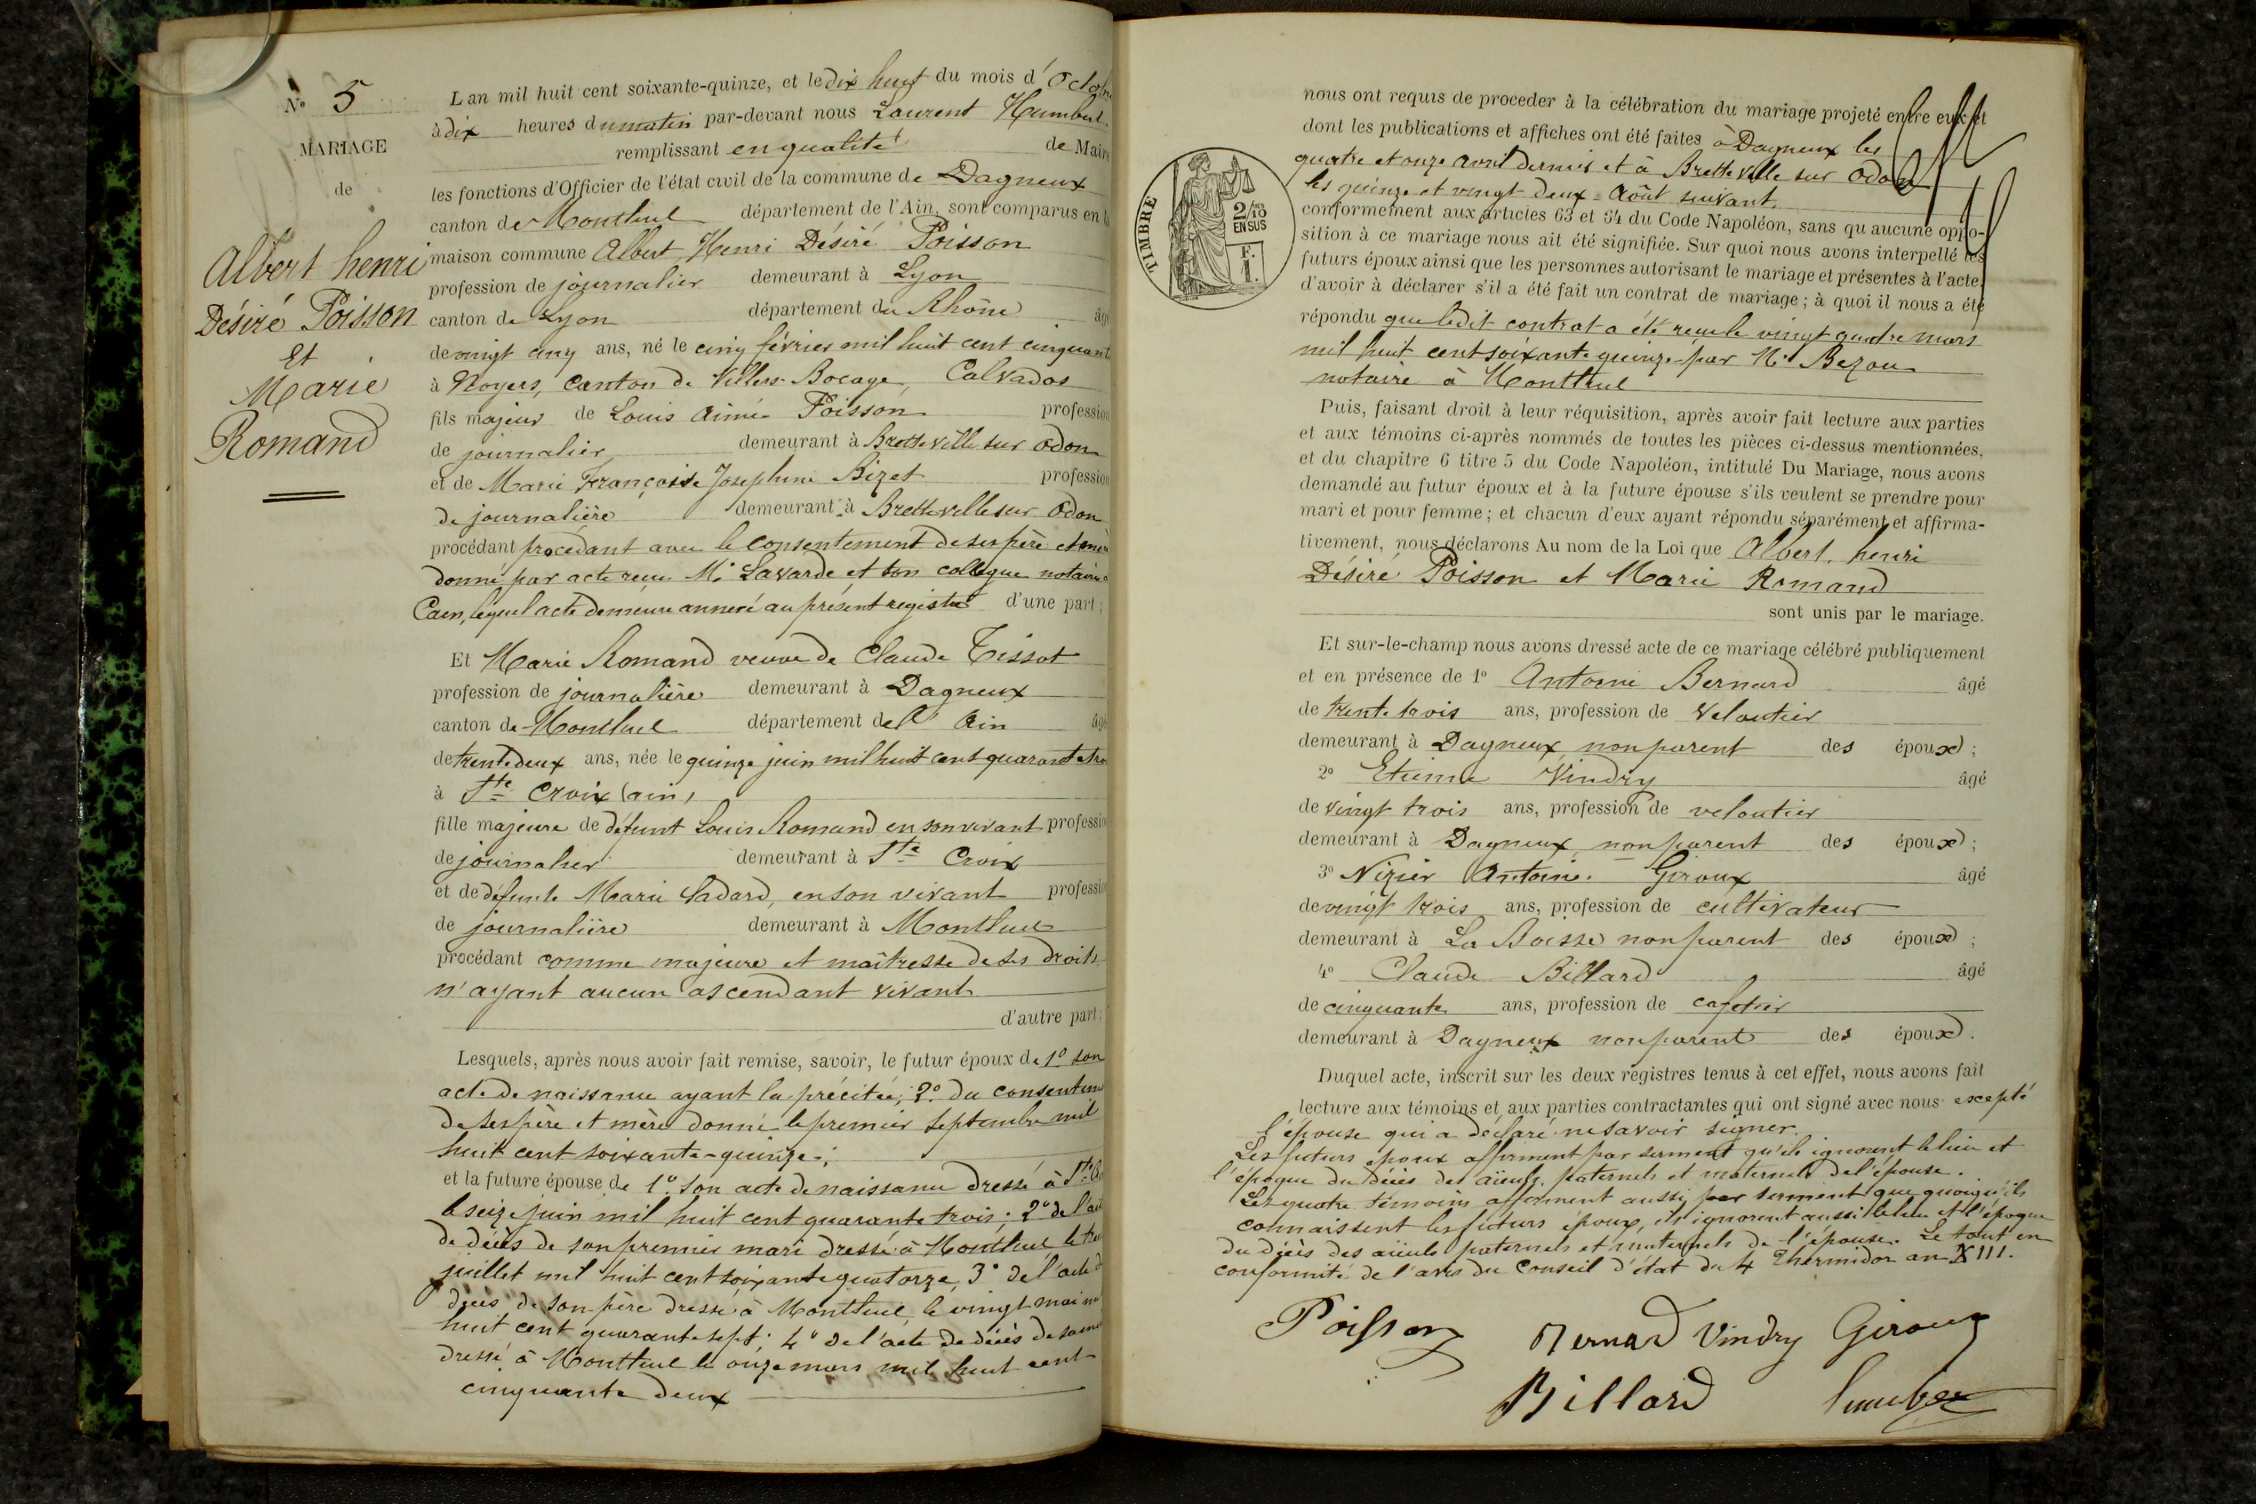 No 5
MARIAGE
de
Albert henri
Désiré Poisson
Et
Marie
Romand
L an mil huit cent soixante-quinze, et le dix huit du mois d' Octobre
à dix heures du matin par-devant nous Laurent Humbert
remplissant en qualité de Maire
les fonctions d'Officier de l'état civil de la commune de Dagneux
canton de Montluel département de l'Ain, sont comparus en la
maison commune Albert, Henri Désiré Poisson
profession de journalier demeurant à Lyon
canton de Lyon département du Rhône âgé
de vingt cinq ans, né le cinq février mil huit cent cinquante
à Noyers, Canton de Villers-Bocage, Calvados
fils majeur de Louis Aimé Poisson profession
de journalier demeurant à Bretteville sur Odon
et de Marie Françoise Josephine Bizet profession
de journalière demeurant à Bretteville sur Odon
procédant procédant avec le consentement de ses père et mère
donné par acte recu Me Lavarde et son collegue notaires
Caen, lequel acte demeure annexé au présent registre d'une part;
Et Marie Romand veuve de Claude Tissot
profession de journalière demeurant à Dagneux
canton de Montluel département de l' Ain âgé
de trente deux ans, née le quinze juin mil huit cent quarante tro
à Ste Croix (ain)
fille majeure de défunt Louis Romand en son vivant profession
de journalier demeurant à Ste Croix
et de défunte Marie Cadard, en son vivant profession
de journalière demeurant à Montluel
procédant comme majeure et maîtresse de ses droits
n'ayant aucun ascendant vivant
d'autre part;
Lesquels, après nous avoir fait remise, savoir, le futur époux de 1o son
acte de naissance ayant la précitée; 2o du consentem
de ses père et mère donné le premier Septembre mil
huit cent soixante-quinze;
et la future épouse de 1o son acte de naissance dressé à Ste C
le seize juin mil huit cent quarante trois; 2o de l'acte
de décès de son premier mari dressé à Montluel le
juillet mil huit cent soixante quatorze, 3o de l'acte d
décès de son père dressé à Montluel, le vingt mai m
huit cent quarante sept; 4o de l'acte de décès de sa mè
dressé à Montluel le onze mars mil huit cent
cinquante deux
nous ont requis de proceder à la célébration du mariage projeté entre eux et
dont les publications et affiches ont été faites à Dagneux les
quatre et onze avril dernier et à Bretteville sur Odon
les quinze et vingt deux Août suivant.
conformément aux articles 63 et 64 du Code Napoléon, sans qu aucune oppo-
sition à ce mariage nous ait été signifiée. Sur quoi nous avons interpellé les
futurs époux ainsi que les personnes autorisant le mariage et présentes à l'acte,
d'avoir à déclarer s'il a été fait un contrat de mariage; à quoi il nous a été
répondu que ledit contrat a été recu le vingt quatre mars
mil huit cent soixante quinze par Me Bezou
notaire à Montluel
TIMBRE
2/10
EN SUS
F.
1.
Puis, faisant droit à leur réquisition, après avoir fait lecture aux parties
et aux témoins ci-après nommés de toutes les pièces ci-dessus mentionnées,
et du chapitre 6 titre 5 du Code Napoléon, intitulé Du Mariage, nous avons
demandé au futur époux et à la future épouse s'ils veulent se prendre pour
mari et pour femme; et chacun d'eux ayant répondu séparément et affirma-
tivement, nous déclarons Au nom de la Loi que Albert, henri
Désiré Poisson et Marie Romand
sont unis par le mariage.
Et sur-le-champ nous avons dressé acte de ce mariage célébré publiquement
et en présence de 1o Antoine Bernard âgé
de trente trois ans, profession de Veloutier
demeurant à Dagneux non parent des époux;
2o Etienne Vindry âgé
de vingt trois ans, profession de veloutier
demeurant à Dagneux non parent des époux;
3o Nizier Antoine Giroux âgé
de vingt trois ans, profession de cultivateur
demeurant à La Boisse non parent des époux;
4o Claude Billard âgé
de cinquante ans, profession de cafetier
demeurant à Dagneux non parent des époux.
Duquel acte, inscrit sur les deux registres tenus à cet effet, nous avons fait
lecture aux témoins et aux parties contractantes qui ont signé avec nous excepté
l'épouse qui a déclaré ne savoir signer.
Les futurs époux affirment par serment qu'ils ignorent le lieu et
l'époque du décès des aïeuls paternels et maternels de l'épouse.
Les quatre témoins affirment aussi par serment que quoiqu'ils
connaissent les futurs époux, ils ignorent aussi le lieu et l'époque
du décès des aïeuls paternels et maternels de l'épouse. Le tout en
conformité de l'avis du Conseil d'état du 4 Thermidor an XIII.
Poisson Bernard Vindry Giroux
Billard Humbert